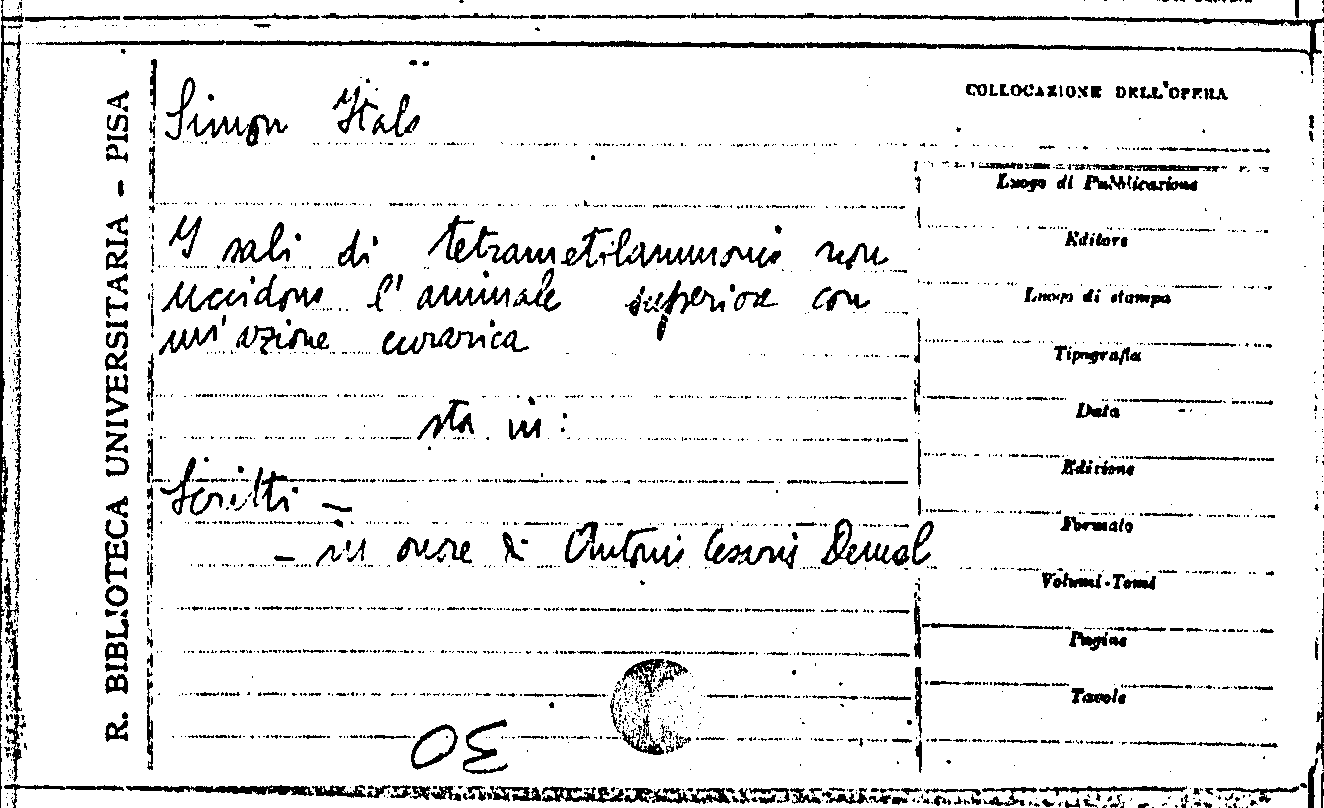 R. BIBLIOTECA UNIVERSITARIA - PISA
Simon Italo
I sali di tetrametilammonio non
uccidono l'animale superiore con
un'azione curarica
sta in:
Scritti -
- in onore di Antonio Cesaris Demel
30
COLLOCAZIONE DELL'OPERA
Luogo di Pubblicazione
Editore
Luogo di stampa
Tipografia
Data
Edizione
Formato
Volumi-Tomi
Pagine
Tavole